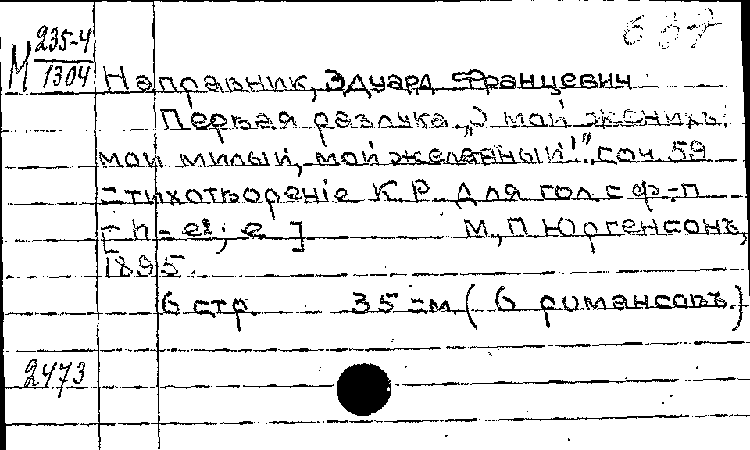 637
М 235-4
1304
Направник, Эдуард Францевич
Первая разлука „О мой женихъ:
мой милый, мой желанный!", соч. 59
Стихотворенiе К. Р. Для гол. с ф-п
[h - e²; e]
М., П. Юргенсонъ,
1895.
6 стр. 35 см (6 романсовъ.)
2473